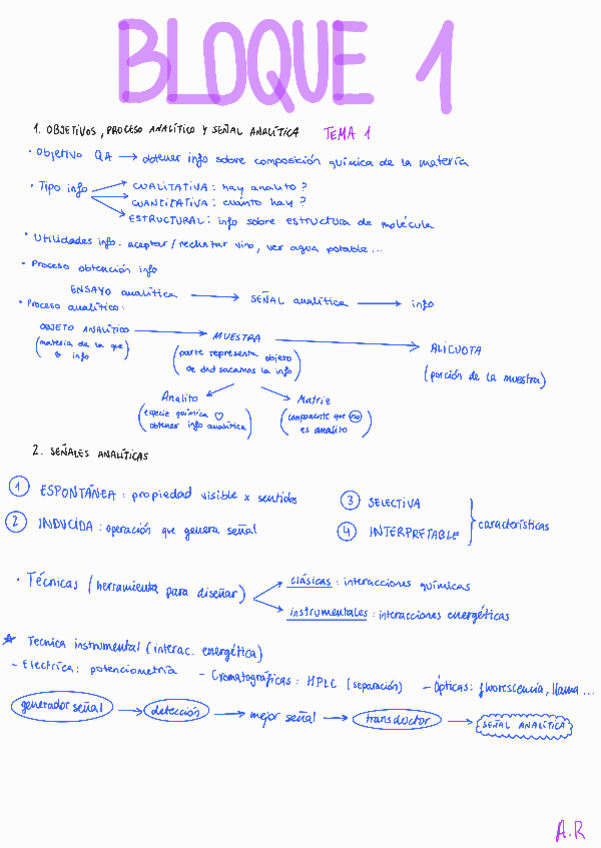 BLOQUE 1
1. OBJETIVOS, PROCESO ANALÍTICO Y SEÑAL ANALÍTICA TEMA 1
· Objetivo QA → obtener info sobre composición química de la materia
· Tipo info → CUALITATIVA: hay analito?
→ CUANTITATIVA: cuánto hay?
→ ESTRUCTURAL: info sobre estructura de molécula
· Utilidades info: aceptar/rechazar vino, ver agua potable...
· Proceso obtención info
ENSAYO analítica → SEÑAL analítica → info
· Proceso analítico:
OBJETO ANALÍTICO → MUESTRA → ALICUOTA
(materia de la que
info)
(parte representa objeto
de dnd sacamos la info)
(porción de la muestra)
Analito
(especie química ♡
obtener info analítica)
Matriz
(componente que no
es analito)
2. SEÑALES ANALÍTICAS
1 ESPONTÁNEA: propiedad visible x sentidos
2 INDUCIDA: operación que genera señal
3 SELECTIVA
4 INTERPRETABLE
características
· Técnicas (herramienta para diseñar) → clásicas: interacciones químicas
→ instrumentales: interacciones energéticas
☆ Tecnica instrumental (interac. energética)
- Electrica: potenciometría - Cromatográficas: HPLC (separación) - Ópticas: fluorescencia, llama...
generador señal → detección → mejor señal → transductor → SEÑAL ANALÍTICA
A.R